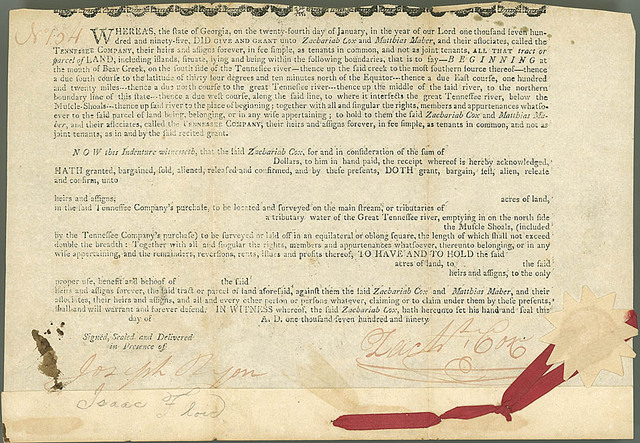 No 134
WHEREAS, the state of Georgia, on the twenty-fourth day of January, in the year of our Lord one thousand seven hun-
dred and ninety-five, DID GIVE AND GRANT unto Zachariah Cox and Matthias Maher, and their associates, called the
TENNESSEE COMPANY, their heirs and assigns forever, in fee simple, as tenants in common, and not as joint tenants, ALL THAT tract or
parcel of LAND, including islands, situate, lying and being within the following boundaries, that is to say—BEGINNING at
the mouth of Bear Creek, on the south side of the Tennessee river—thence up the said creek to the most southern source thereof—thence
a due south course to the latitude of thirty four degrees and ten minutes north of the Equator—thence a due East course, one hundred
and twenty miles—thence a due north course to the great Tennessee river—thence up the middle of the said river, to the northern
boundary line of this state—thence a due west course, along the said line, to where it intersects the great Tennessee river, below the
Muscle-Shoals—thence up said river to the place of beginning; together with all and singular the rights, members and appurtenances whatso-
ever to the said parcel of land being, belonging, or in any wise appertaining; to hold to them the said Zachariah Cox and Matthias Ma-
her, and their associates, called the TENNESSEE COMPANY, their heirs and assigns forever, in fee simple, as tenants in common, and not as
joint tenants, as in and by the said recited grant.
NOW this Indenture witnesseth, that the said Zachariah Cox, for and in consideration of the sum of
Dollars, to him in hand paid, the receipt whereof is hereby acknowledged,
HATH granted, bargained, sold, aliened, released and confirmed, and by these presents, DOTH grant, bargain, sell, alien, release
and confirm, unto
heirs and assigns, acres of land,
in the said Tennessee Company's purchase, to be located and surveyed on the main stream, or tributaries of
a tributary water of the Great Tennessee river, emptying in on the north side
the Muscle Shoals, (included
by the Tennessee Company's purchase) to be surveyed or laid off in an equilateral or oblong square, the length of which shall not exceed
double the breadth: Together with all and singular the rights, members and appurtenances whatsoever, thereunto belonging, or in any
wise appertaining, and the remainders, reversions, rents, issues and profits thereof, TO HAVE AND TO HOLD the said
acres of land, to the said
heirs and assigns, to the only
proper use, benefit and behoof of the said
heirs and assigns forever, the said tract or parcel of land aforesaid, against them the said Zachariah Cox and Matthias Maher, and their
associates, their heirs and assigns, and all and every other person or persons whatever, claiming or to claim under them by these presents,
shall and will warrant and forever defend. IN WITNESS whereof, the said Zachariah Cox, hath hereunto set his hand and seal this
day of A. D. one thousand seven hundred and ninety
Signed, Sealed and Delivered
in Presence of
Zach. Cox
Joseph Ryon
Isaac Floid